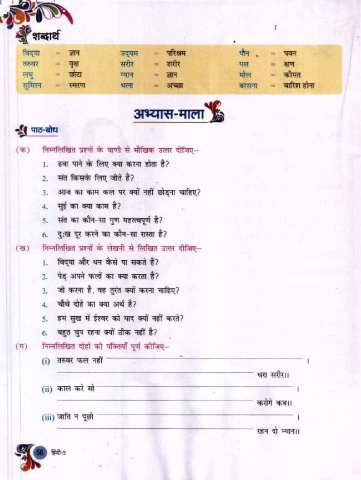 शब्दार्थ
विद्या = ज्ञान उद्यम = परिश्रम पौन = पवन
तरुवर = वृक्ष सरीर = शरीर पल = क्षण
लघु = छोटा ग्यान = ज्ञान मोल = कीमत
सुमिरन = स्मरण भला = अच्छा बरसना = बारिश होना
अभ्यास-माला
पाठ-बोध
(क) निम्नलिखित प्रश्नों के वाणी से मौखिक उत्तर दीजिए–
1. हवा पाने के लिए क्या करना होता है?
2. संत किसके लिए जीते हैं?
3. आज का काम कल पर क्यों नहीं छोड़ना चाहिए?
4. सुई का क्या काम है?
5. संत का कौन-सा गुण महत्वपूर्ण है?
6. दुःख दूर करने का कौन-सा रास्ता है?
(ख) निम्नलिखित प्रश्नों के लेखनी से लिखित उत्तर दीजिए–
1. विद्या और धन कैसे पा सकते हैं?
2. पेड़ अपने फलों का क्या करता है?
3. जो करना है, वह तुरंत क्यों करना चाहिए?
4. चौथे दोहे का क्या अर्थ है?
5. हम सुख में ईश्वर को याद क्यों नहीं करते?
6. बहुत चुप रहना क्यों ठीक नहीं है?
(ग) निम्नलिखित दोहों की पंक्तियाँ पूर्ण कीजिए–
(i) तरुवर फल नहीं ।
धरा सरीर॥
(ii) काल करे सो ।
करोगे कब॥
(iii) जाति न पूछो ।
रहन दो म्यान॥
56 हिंदी-5